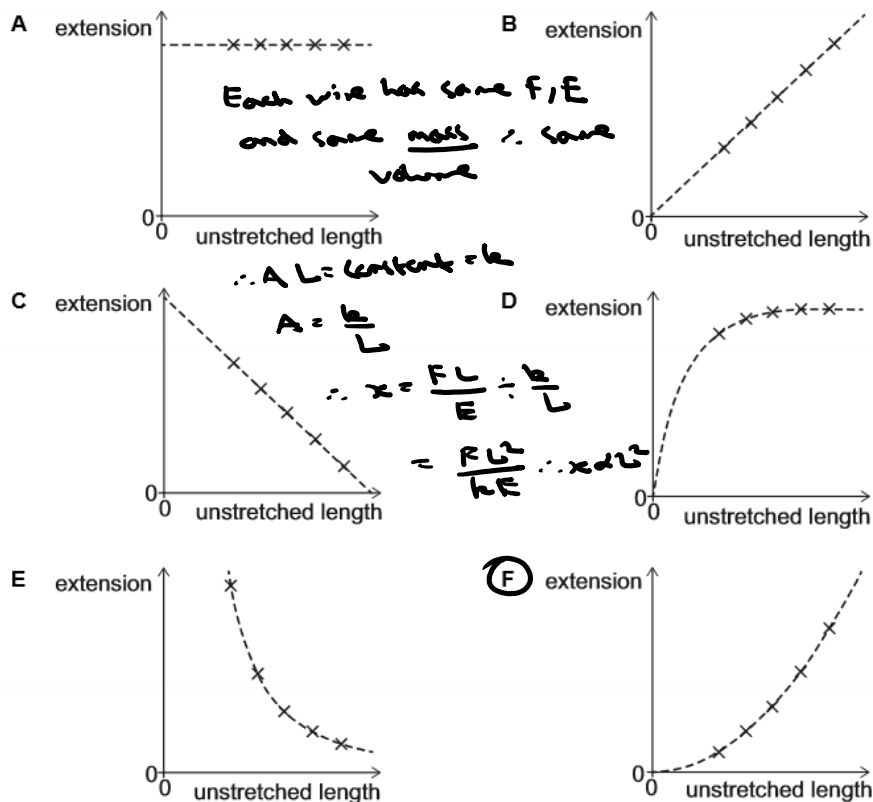 A
extension
0
0
unstretched length
B
extension
0
0
unstretched length
Each wire has same F, E
and same mass ∴ same
volume
∴ A L = constant = k
A = k/L
∴ x = FL/E ÷ k/L
= FL²/kE ∴ x α L²
C
extension
0
0
unstretched length
D
extension
0
0
unstretched length
E
extension
0
0
unstretched length
F
extension
0
0
unstretched length